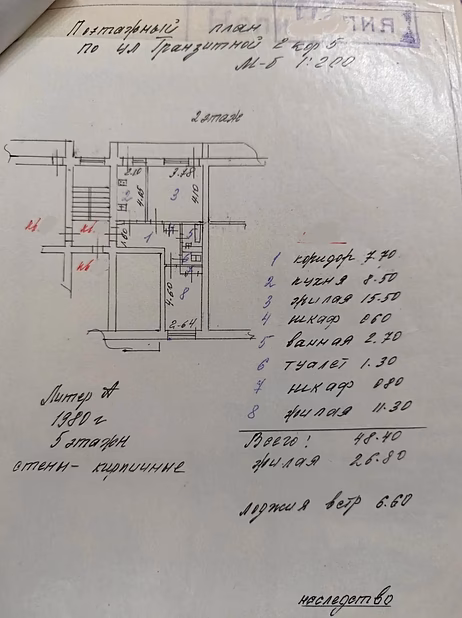 Поэтажный план
по ул Транзитной 2 кор 5
М-б 1:200
2 этаж
2.10
3.78
4.05
4.10
3
1
5
6
1.80
4.60
8
2-64
кв.
кв.
кв
1 коридор 7.70
2 кухня 8.50
3 жилая 15.50
4 шкаф 060
5 ванная 2.70
6 туалет 1.30
7 шкаф 080
8 жилая 11.30
Всего! 48.40
жилая 26.80
лоджия встр 6.60
Литер А
1980 г
5 этажн
стены - кирпичные
наследство